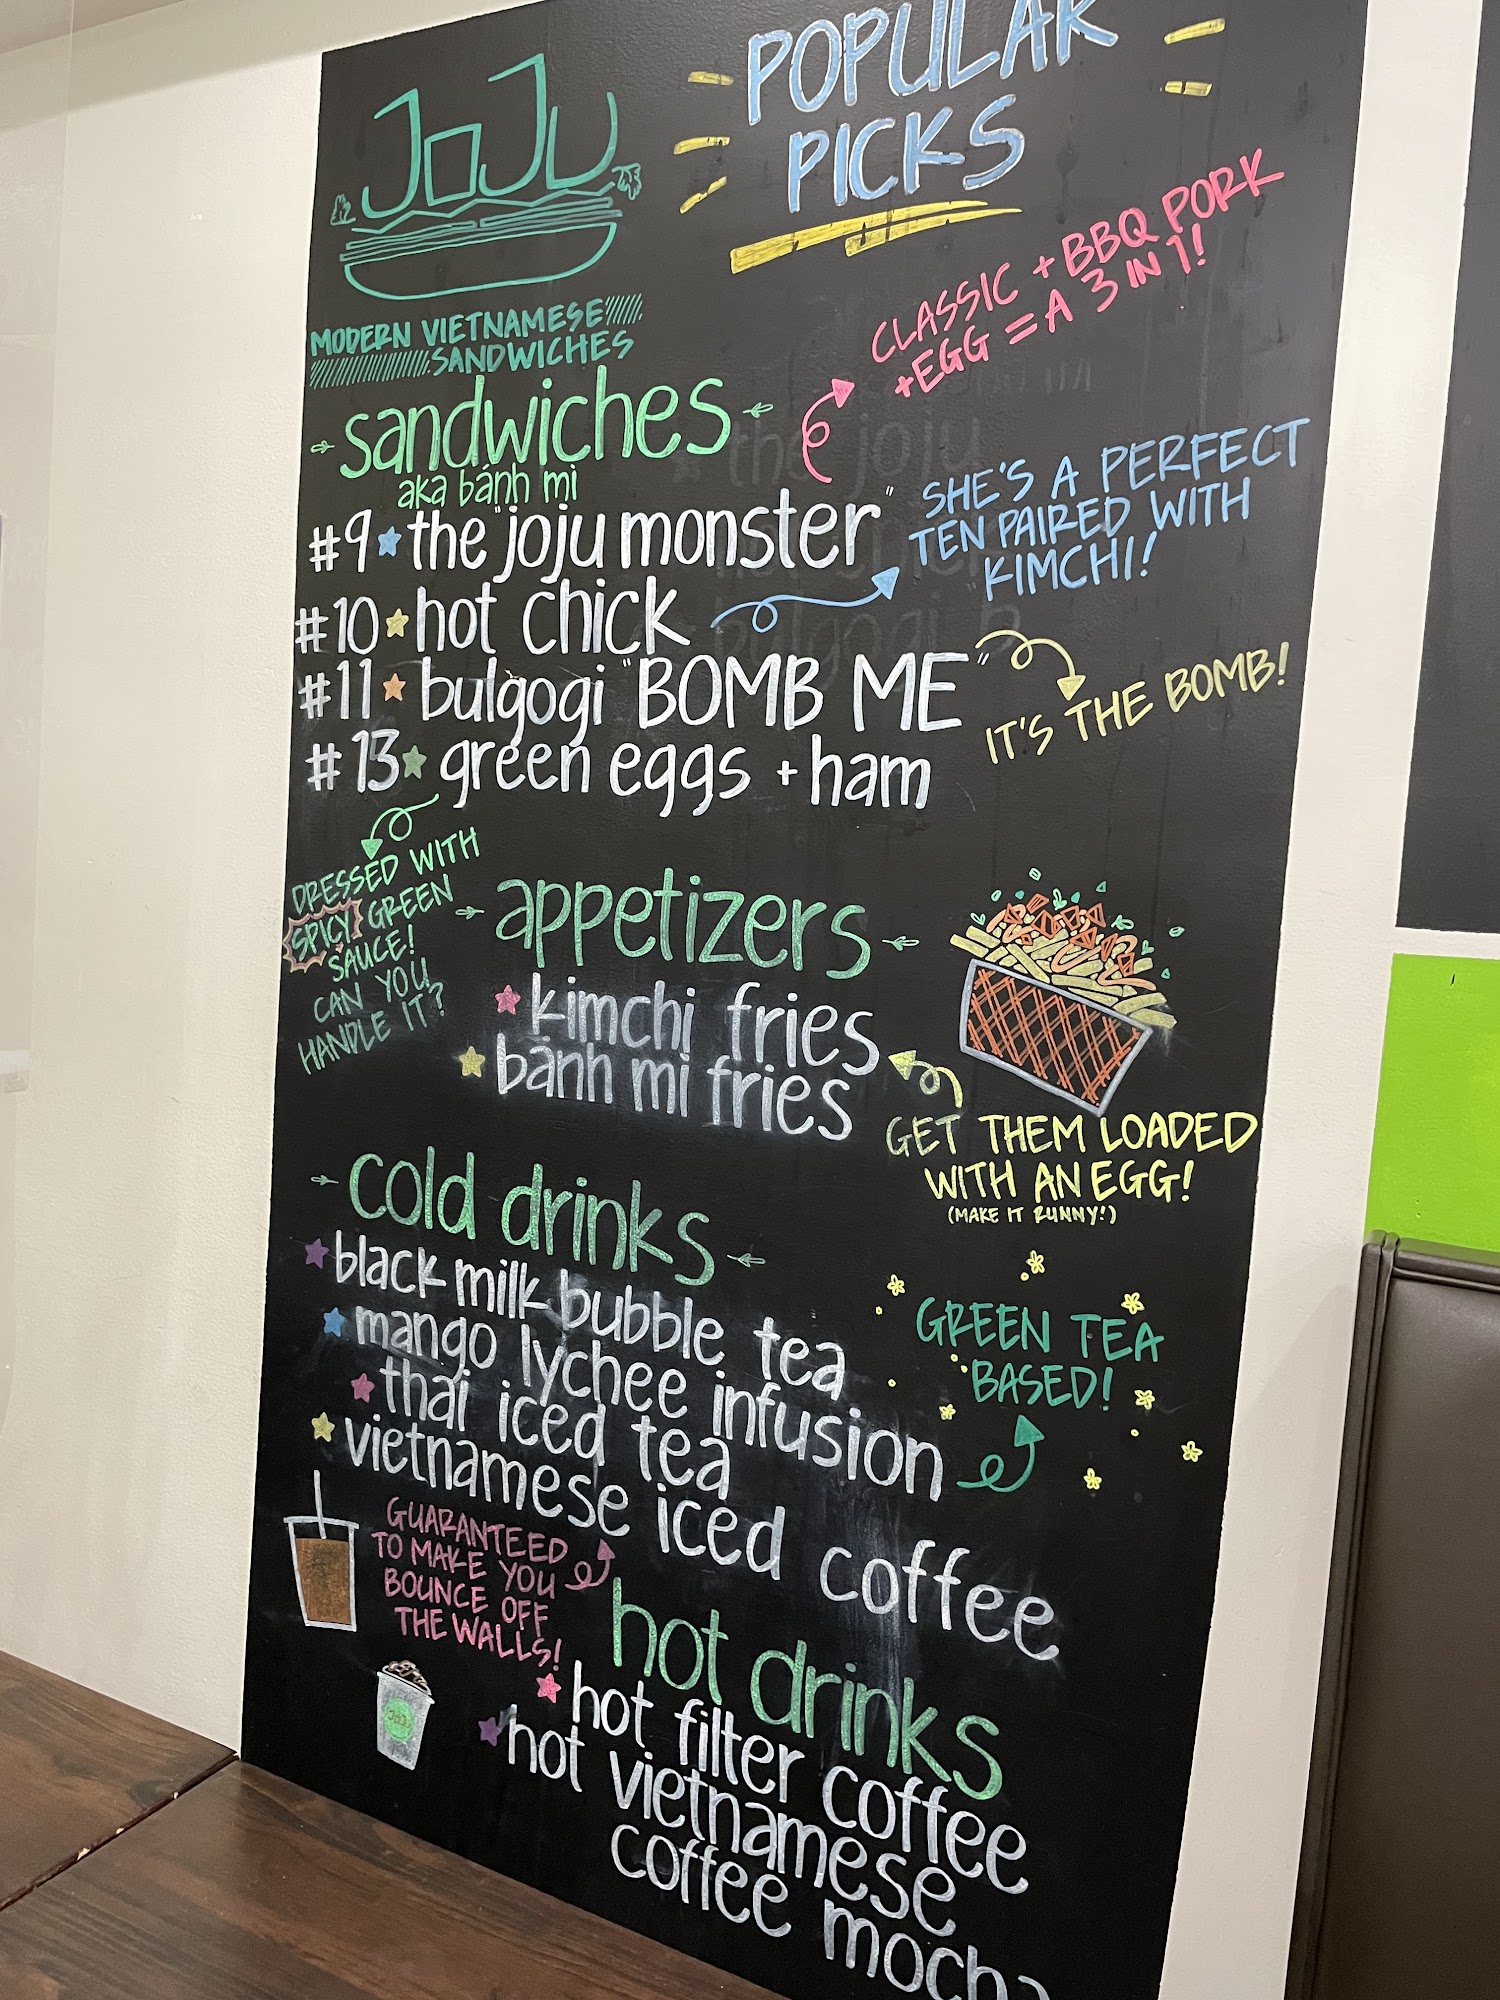 JOJU
MODERN VIETNAMESE
SANDWICHES
POPULAR
PICKS
CLASSIC + BBQ PORK
+EGG = A 3 IN 1!
sandwiches
aka bánh mi
#9 the "joju monster"
#10 hot chick
SHE'S A PERFECT
TEN PAIRED WITH
KIMCHI!
#11 bulgogi "BOMB ME"
IT'S THE BOMB!
#13 green eggs + ham
DRESSED WITH
SPICY GREEN
SAUCE!
CAN YOU
HANDLE IT?
appetizers
kimchi fries
bánh mi fries
GET THEM LOADED
WITH AN EGG!
(MAKE IT RUNNY!)
cold drinks
black milk bubble tea
mango lychee infusion
GREEN TEA
BASED!
thai iced tea
vietnamese iced coffee
GUARANTEED
TO MAKE YOU
BOUNCE OFF
THE WALLS!
hot drinks
hot filter coffee
hot vietnamese
coffee mocha